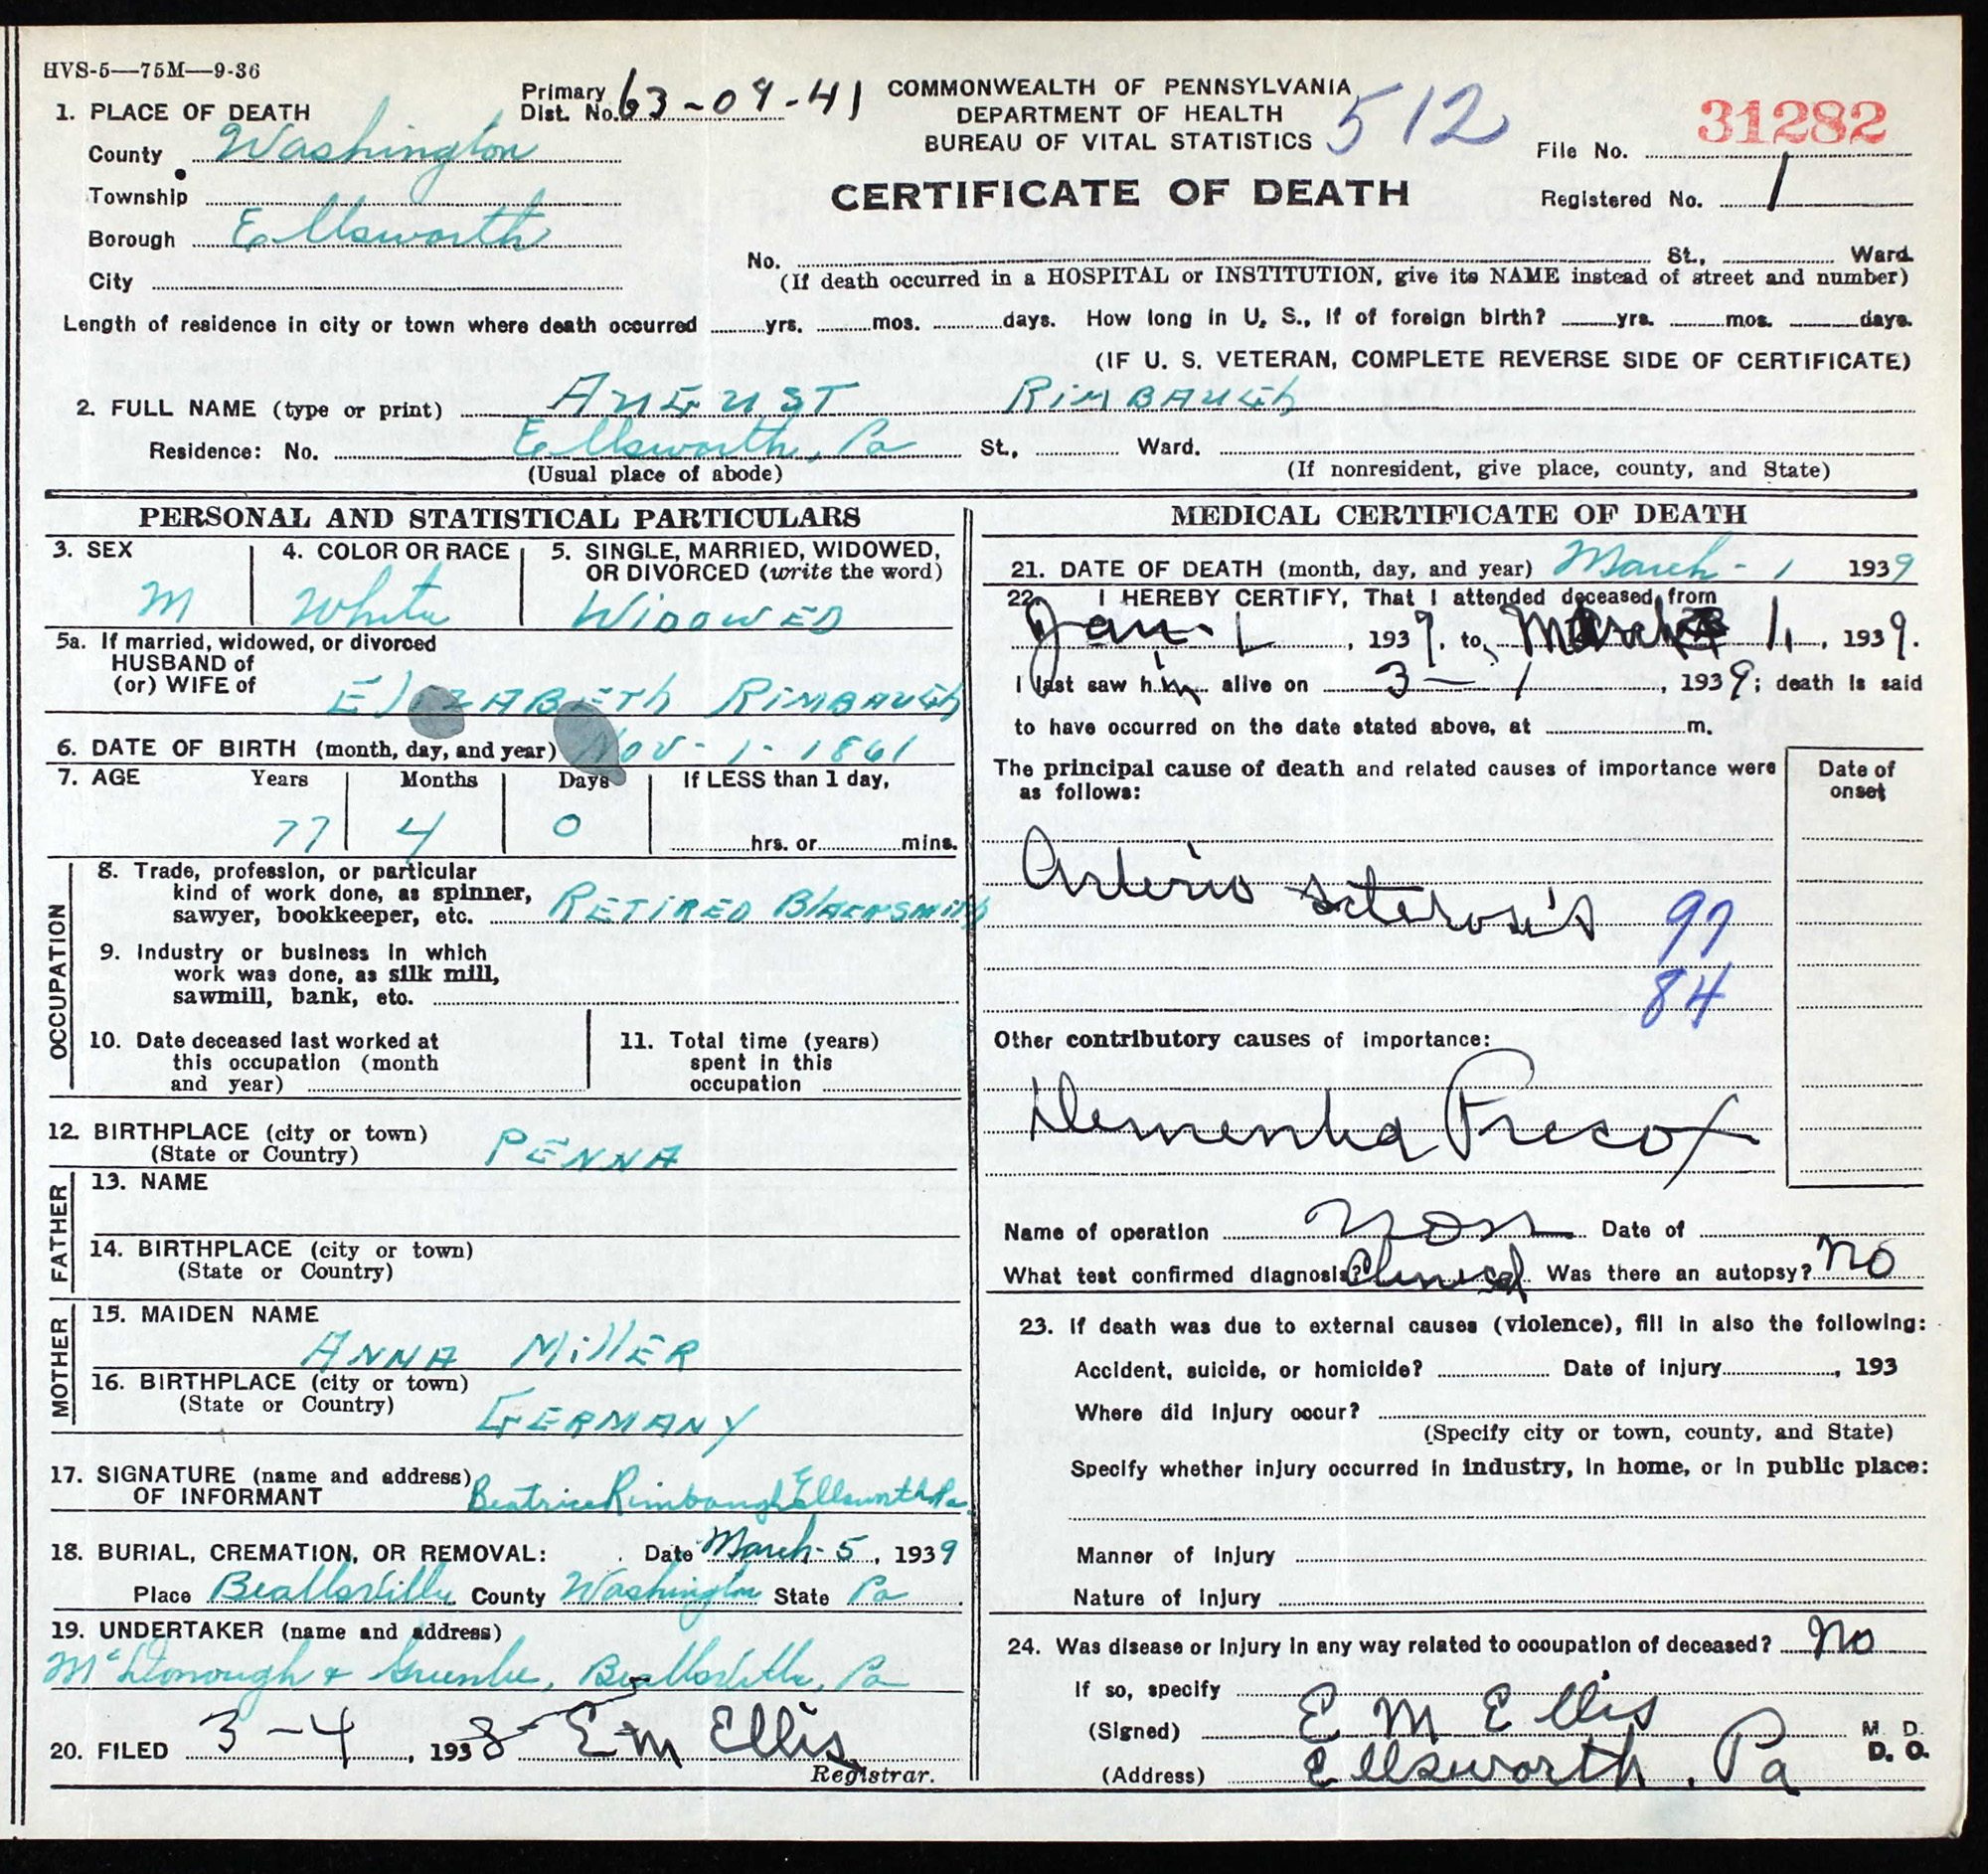 HVS-5—75M—9-36
Primary Dist. No. 63-09-41
COMMONWEALTH OF PENNSYLVANIA
DEPARTMENT OF HEALTH
BUREAU OF VITAL STATISTICS
512
31282
File No.
Registered No. 1
CERTIFICATE OF DEATH
1. PLACE OF DEATH
County Washington
Township
Borough Ellsworth
City
No. St., Ward.
(If death occurred in a HOSPITAL or INSTITUTION, give its NAME instead of street and number)
Length of residence in city or town where death occurred yrs. mos. days. How long in U. S., if of foreign birth? yrs. mos. days.
(IF U. S. VETERAN, COMPLETE REVERSE SIDE OF CERTIFICATE)
2. FULL NAME (type or print) AUGUST RIMBAUGH
Residence: No. Ellsworth, Pa St., Ward.
(Usual place of abode) (If nonresident, give place, county, and State)
PERSONAL AND STATISTICAL PARTICULARS
3. SEX 4. COLOR OR RACE 5. SINGLE, MARRIED, WIDOWED,
OR DIVORCED (write the word)
M White WIDOWED
5a. If married, widowed, or divorced
HUSBAND of
(or) WIFE of ELIZABETH RIMBAUGH
6. DATE OF BIRTH (month, day, and year) Nov-1-1861
7. AGE Years Months Days If LESS than 1 day,
77 4 0 hrs. or mins.
OCCUPATION
8. Trade, profession, or particular
kind of work done, as spinner,
sawyer, bookkeeper, etc. RETIRED BLACKSMITH
9. Industry or business in which
work was done, as silk mill,
sawmill, bank, etc.
10. Date deceased last worked at
this occupation (month
and year)
11. Total time (years)
spent in this
occupation
12. BIRTHPLACE (city or town)
(State or Country) PENNA
FATHER
13. NAME
14. BIRTHPLACE (city or town)
(State or Country)
MOTHER
15. MAIDEN NAME
ANNA MILLER
16. BIRTHPLACE (city or town)
(State or Country) GERMANY
17. SIGNATURE (name and address)
OF INFORMANT Beatrice Rimbaugh Ellsworth Pa.
18. BURIAL, CREMATION, OR REMOVAL: Date March-5, 1939
Place Beallsville County Washington State Pa
19. UNDERTAKER (name and address)
McDonough & Greenlee, Beallsville, Pa
20. FILED 3-4, 1938 E M Ellis
Registrar.
MEDICAL CERTIFICATE OF DEATH
21. DATE OF DEATH (month, day, and year) March-1 1939
22. I HEREBY CERTIFY, That I attended deceased from
Jan. 1, 1939, to March 1, 1939.
I last saw him alive on 3-1, 1939; death is said
to have occurred on the date stated above, at m.
The principal cause of death and related causes of importance were
as follows:
Date of
onset
Arterio Sclerosis
97
84
Other contributory causes of importance:
Dementia Precox
Name of operation non Date of
What test confirmed diagnosis? Clinical Was there an autopsy? no
23. If death was due to external causes (violence), fill in also the following:
Accident, suicide, or homicide? Date of injury, 193
Where did injury occur?
(Specify city or town, county, and State)
Specify whether injury occurred in industry, in home, or in public place:
Manner of injury
Nature of injury
24. Was disease or injury in any way related to occupation of deceased? No
If so, specify
(Signed) E M Ellis M. D.
D. O.
(Address) Ellsworth. Pa